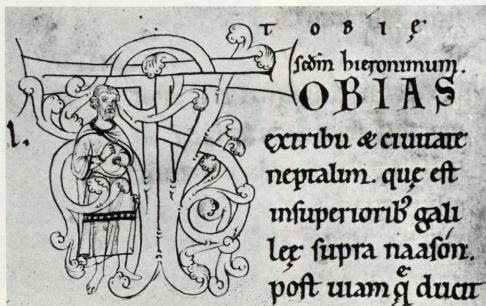 TOBIĘ
scdm hieronimum.
TOBIAS
ex tribu & ciuitate
neptalim. quę est
in superiorib' gali
leę supra naasón.
post uiam q̄ ducit
I.